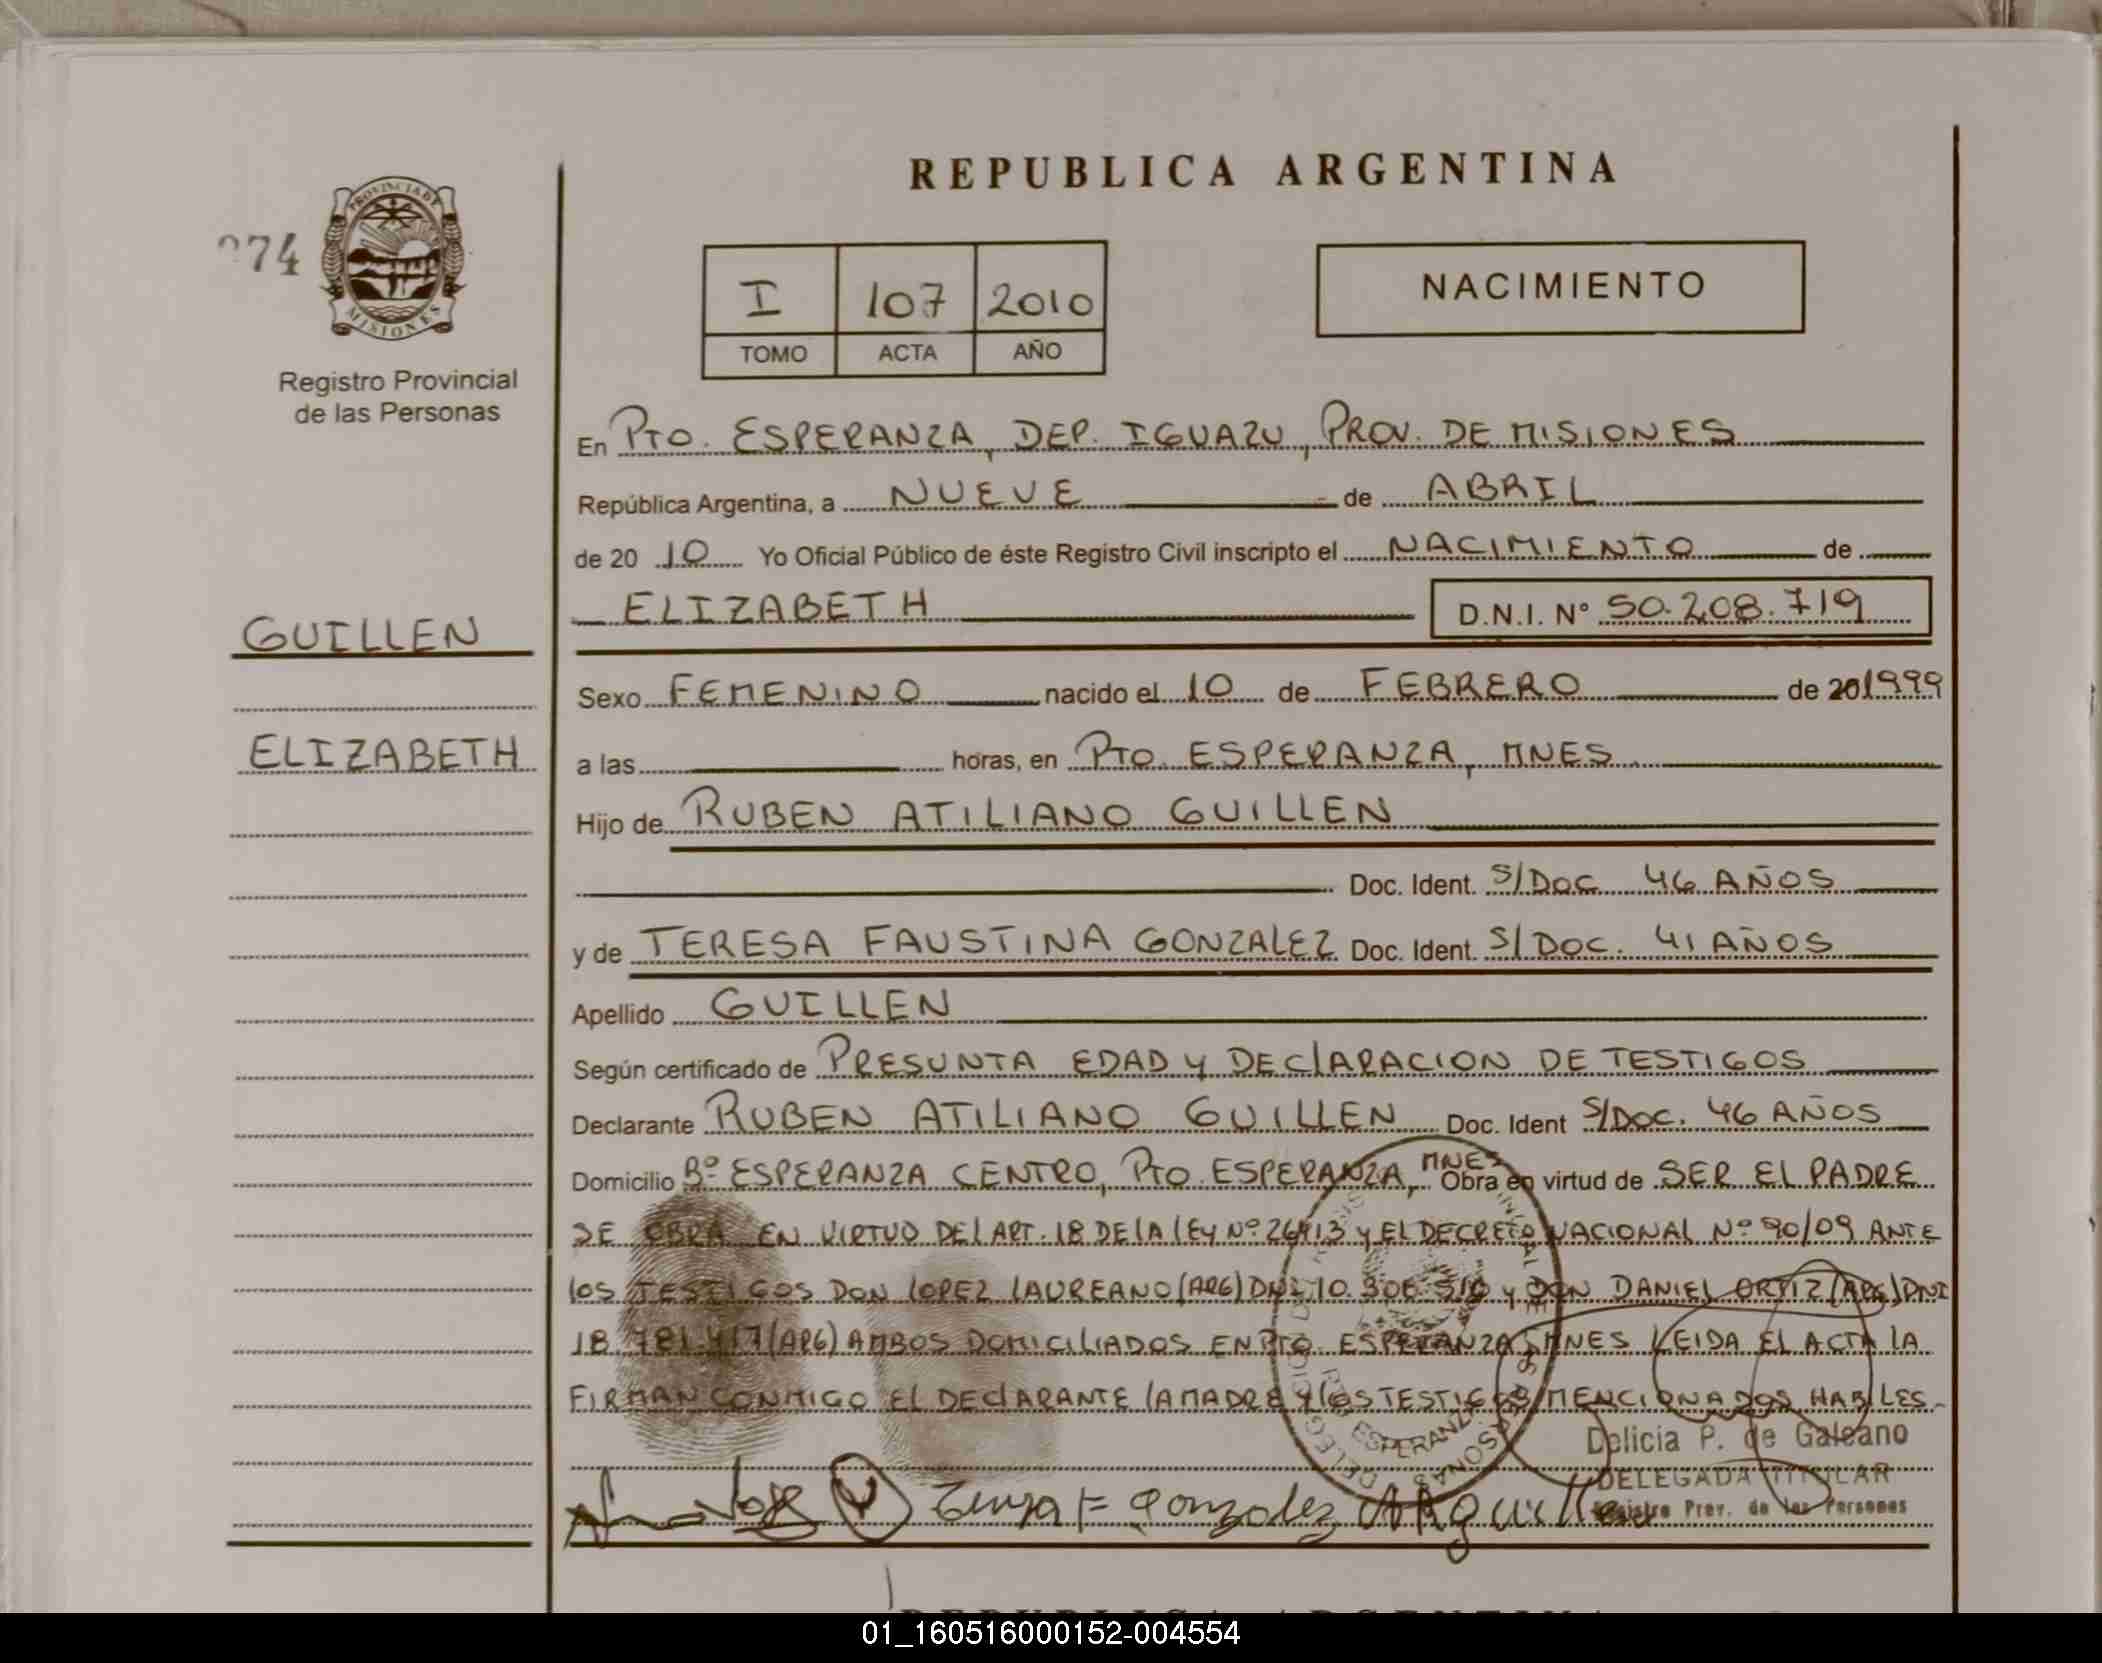 REPUBLICA ARGENTINA
PROVINCIA DE
MISIONES
74
Registro Provincial
de las Personas
I 107 2010
TOMO ACTA AÑO
NACIMIENTO
En PTO. ESPERANZA, DEP. IGUAZU, PROV. DE MISIONES
República Argentina, a NUEVE de ABRIL
de 20 10 Yo Oficial Público de éste Registro Civil inscripto el NACIMIENTO de
ELIZABETH D.N.I. Nº 50.208.719
GUILLEN
ELIZABETH
Sexo FEMENINO nacido el 10 de FEBRERO de 20 1999
a las horas, en PTO. ESPERANZA, MNES.
Hijo de RUBEN ATILIANO GUILLEN
Doc. Ident. S/DOC 46 AÑOS
y de TERESA FAUSTINA GONZALEZ Doc. Ident. S/DOC. 41 AÑOS
Apellido GUILLEN
Según certificado de PRESUNTA EDAD Y DEClARACION DE TESTIGOS
Declarante RUBEN ATILIANO GUILLEN Doc. Ident S/DOC. 46 AÑOS
Domicilio Bº ESPERANZA CENTRO, PTO. ESPERANZA, MNES Obra en virtud de SER EL PADRE
SE OBRA EN VIRTUD DEl ART. 18 DE lA lEY Nº 26413 Y EL DECRETO NACIONAL Nº 90/09 ANTE
lOS TESTIGOS DON lOPEZ lAUREANO (ARG) DNI 10.306.510 Y DON DANIEL ORTIZ (ARG) DNI
18.781.417 (ARG) AMBOS DOMICILIADOS EN PTO. ESPERANZA, MNES LEIDA EL ACTA lA
FIRMAN CONMIGO EL DEClARANTE lA MADRE Y lOS TESTIGOS MENCIONADOS HABILES.
Delicia P. de Galeano
DELEGADA TITULAR
Registro Prov. de las Personas
Teresa F Gonzalez
01_160516000152-004554